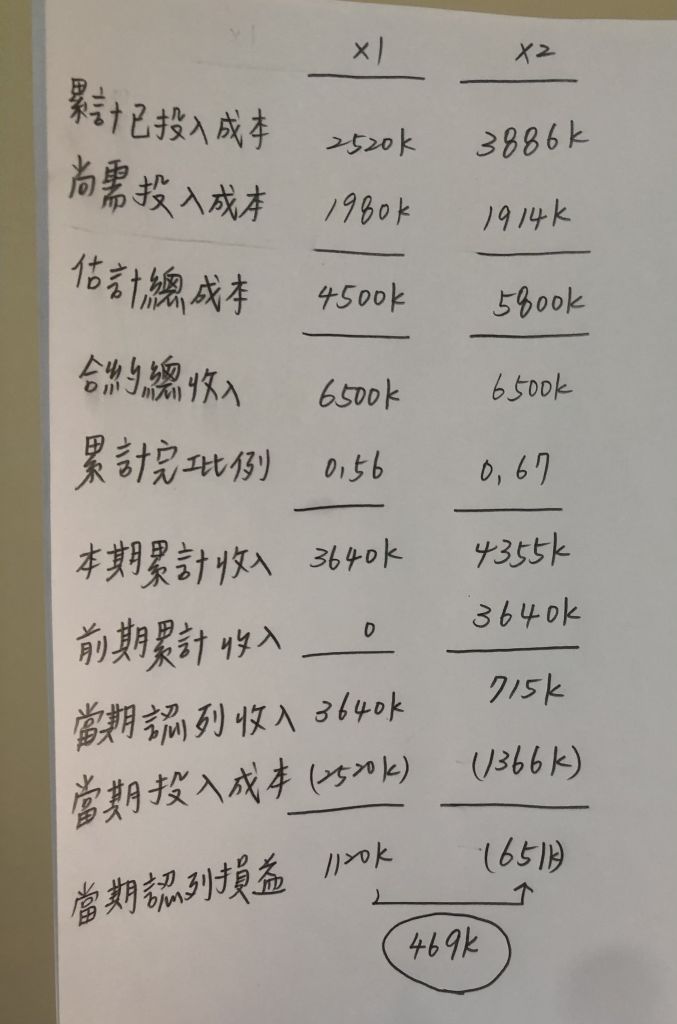 X1 X2
累計已投入成本 2520k 3886k
尚需投入成本 1980k 1914k
估計總成本 4500k 5800k
合約總收入 6500k 6500k
累計完工比例 0.56 0.67
本期累計收入 3640k 4355k
前期累計收入 0 3640k
當期認列收入 3640k 715k
當期投入成本 (2520k) (1366k)
當期認列損益 1120k (651k)
469k